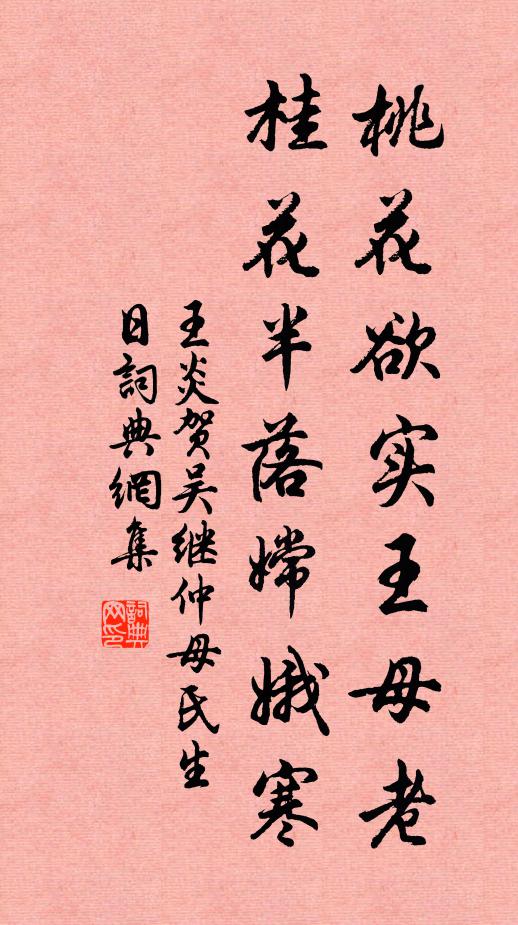 桃花欲实王母老
桂花半落嫦娥寒
王炎贺吴继仲母氏生
日詞典網集
詞典网印